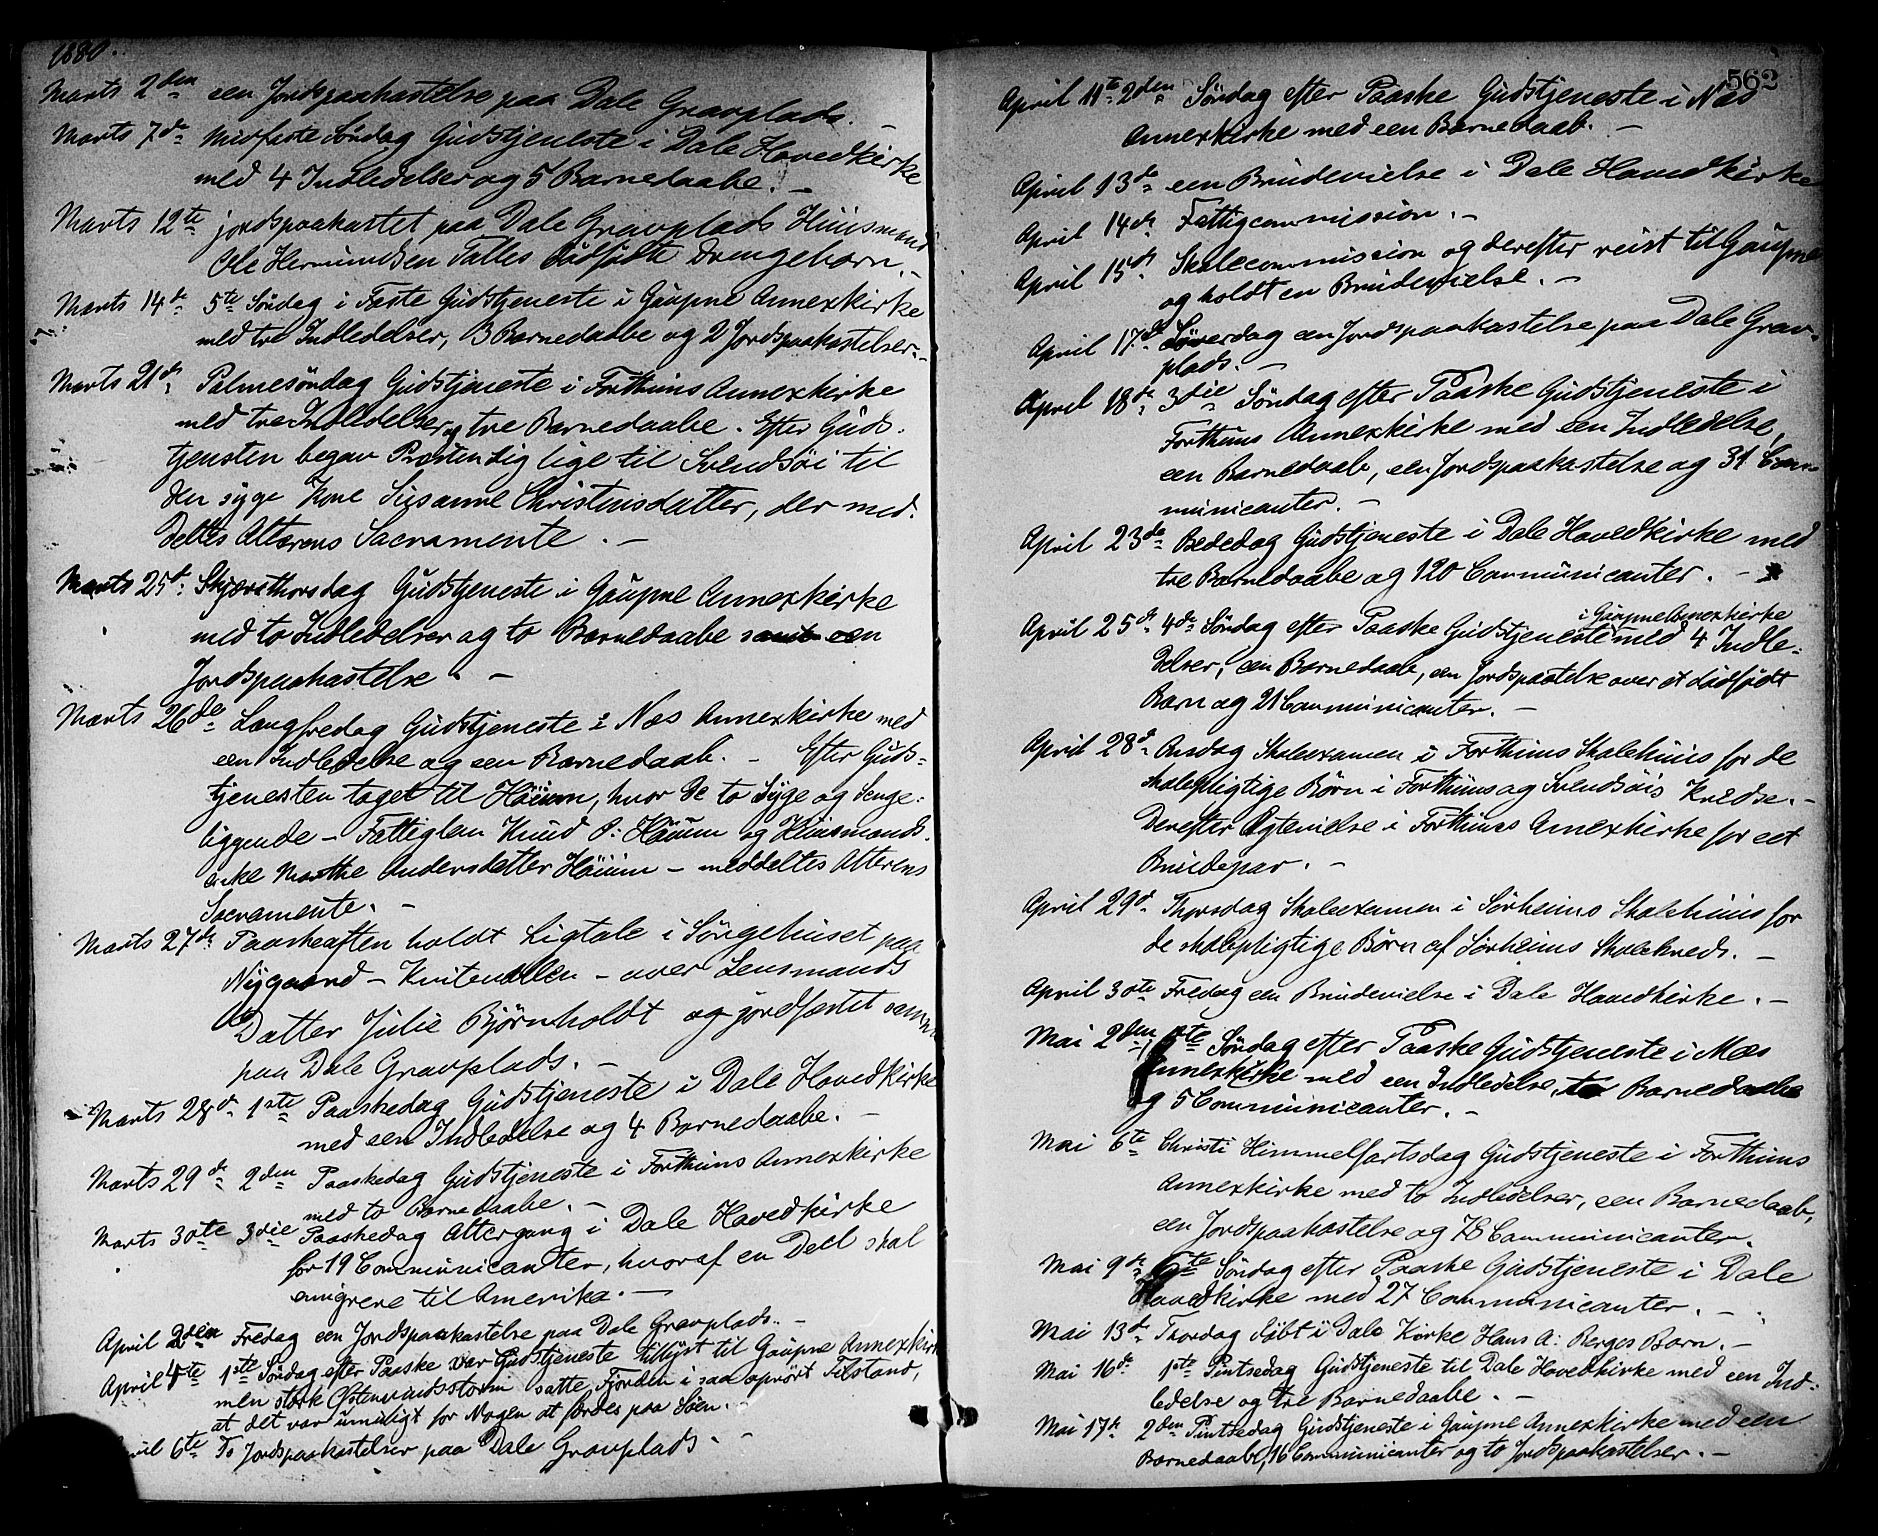 1880.
Marts 2den een Jordspaakastelse paa Dale Gravplads. –
Marts 7de Midfaste Søndag Gudstjeneste i Dale Hovedkirke
med 4 Indledelser og 5 Barnedaabe. –
Marts 12te jordspaakastet paa Dale Gravplads Huusmand
Ole Hermundsen Talles dødfødte Drengebarn. –
Marts 14de 5te Søndag i Faste Gudstjeneste i Gaupne Annexkirke
med tre Indledelser, 3 Barnedaabe og 2 Jordspaakastelser. –
Marts 21de Palmesøndag Gudstjeneste i Forthuns Annexkirke
med tre Indledelser og tre Barnedaabe. Efter Guds-
tjensten begav Præsten sig lige til Svendsøi til
den syge Kone Susanne Christensdatter, der med-
deltes Alterens Sacramente. –
Marts 25de Skjærsthorsdag Gudstjeneste i Gaupne Annexkirke
med to Indledelser og to Barnedaabe samt een
Jordspaakastelse. –
Marts 26de Langfredag Gudstjeneste i Næs Annexkirke med
een Indledelse og een Barnedaab. – Efter Guds-
tjenesten taget til Høium, hvor de to Syge og Senge-
liggende – Fattiglem Knud O: Høium og Huusmands-
enke Marthe Andersdatter Høium – meddeltes Alterens
Sacramente. –
Marts 27de Paaskeaften holdt Ligtale i Sørgehuset paa
Nygaard – Kvitevolden – over Lensmands
Datter Julie Bjørnholdt og jordfæstet samme
paa Dale Gravplads. –
Marts 28de 1ste Paaskedag Gudstjeneste i Dale Hovedkirke
med een Indledelse og 4 Barnedaabe. –
Marts 29de 2den Paaskedag Gudstjeneste i Forthuns Annexkirke
med to Barnedaabe. –
Marts 30te 3die Paaskedag Altergang i Dale Hovedkirke
for 19 Communicanter, hvoraf en Deel skal
emigrere til Amerika. –
April 2den Fredag een Jordspaakastelse paa Dale Gravplads. –
April 4te 1ste Søndag efter Paaske var Gudstjeneste tillyst til Gaupne Annexkirke
men stærk Østenvindsstorm satte Fjorden i saa oprørt Tilstand,
at det var umuligt for Nogen at færdes paa Søen. –
April 6te To Jordspaakastelser paa Dale Gravplads. –
562
April 11te 2den Søndag efter Paaske Gudstjeneste i Næs
Annexkirke med een Barnedaab. –
April 13de een Brudevielse i Dale Hovedkirke
April 14de Fattigcommission. –
April 15de Skolecommission og derefter reist til Gaupne
og holdt en Brudevielse. –
April 17de Løverdag een Jordspaakastelse paa Dale Grav-
plads. –
April 18de 3die Søndag efter Paaske Gudstjeneste i
Forthuns Annexkirke med een Indledelse,
een Barnedaab, een Jordspaakastelse og 31 Com-
municanter. –
April 23de Bededag Gudstjeneste i Dale Hovedkirke med
tre Barnedaabe og 120 Communicanter. –
i Gaupne Annexkirke
April 25de 4de Søndag efter Paaske Gudstjeneste med 4 Indle-
delser, een Barnedaab, een Jordspaatelse over et dødfødt
Barn og 21 Communicanter. –
April 28de Onsdag Skoleexamen i Forthuns Skolehuus for de
skolepligtige Børn i Forthuns og Svendsøis Kredse. –
Derefter Egtevielse i Forthuns Annexkirke for eet
Brudepar. –
April 29de Thorsdag Skoleexamen i Sørheims Skolehuus for
de skolepligtige Børn af Sørheims Skolekreds. –
April 30te Fredag een Brudevielse i Dale Hovedkirke. –
Mai 2den 5te Søndag efter Paaske Gudstjeneste i Næs
Annexkirke med een Indledelse, to Barnedaabe
og 5 Communicanter. –
Mai 6te Christi Himmelfartsdag Gudstjeneste i Forthuns
Annexkirke med to Indledelser, een Barnedaab,
een Jordspaakastelse og 78 Communicanter.
Mai 9de 6te Søndag efter Paaske Gudstjeneste i Dale
Hovedkirke med 27 Communicanter. –
Mai 13de Thorsdag døbt i Dale Kirke Hans A: Berges Barn. –
Mai 16de 1ste Pintsedag Gudstjeneste til Dale Hovedkirke med een Ind-
ledelse og tre Barnedaabe. –
Mai 17de 2den Pintsedag Gudstjeneste i Gaupne Annexkirke med een
Barnedaab, 16 Communicanter og to Jordspaakastelser. –